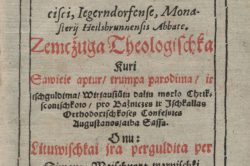 cisci, Iegerndorfense, Mona-
sterij Heilsbrunnensis Abbate.
Zemczuga Theologischka
Kuri
Sawieie aptur / trumpa parodima / ir
ischguldima / Wirsausiũju daliu mokslo Chrik-
scionischkoio / pro Baßniczes ir Ischkallas
Orthodoxischkoses Confesiios
Augustanos / alba Saksa.
O nu:
Lituwischkai jra perguldita per